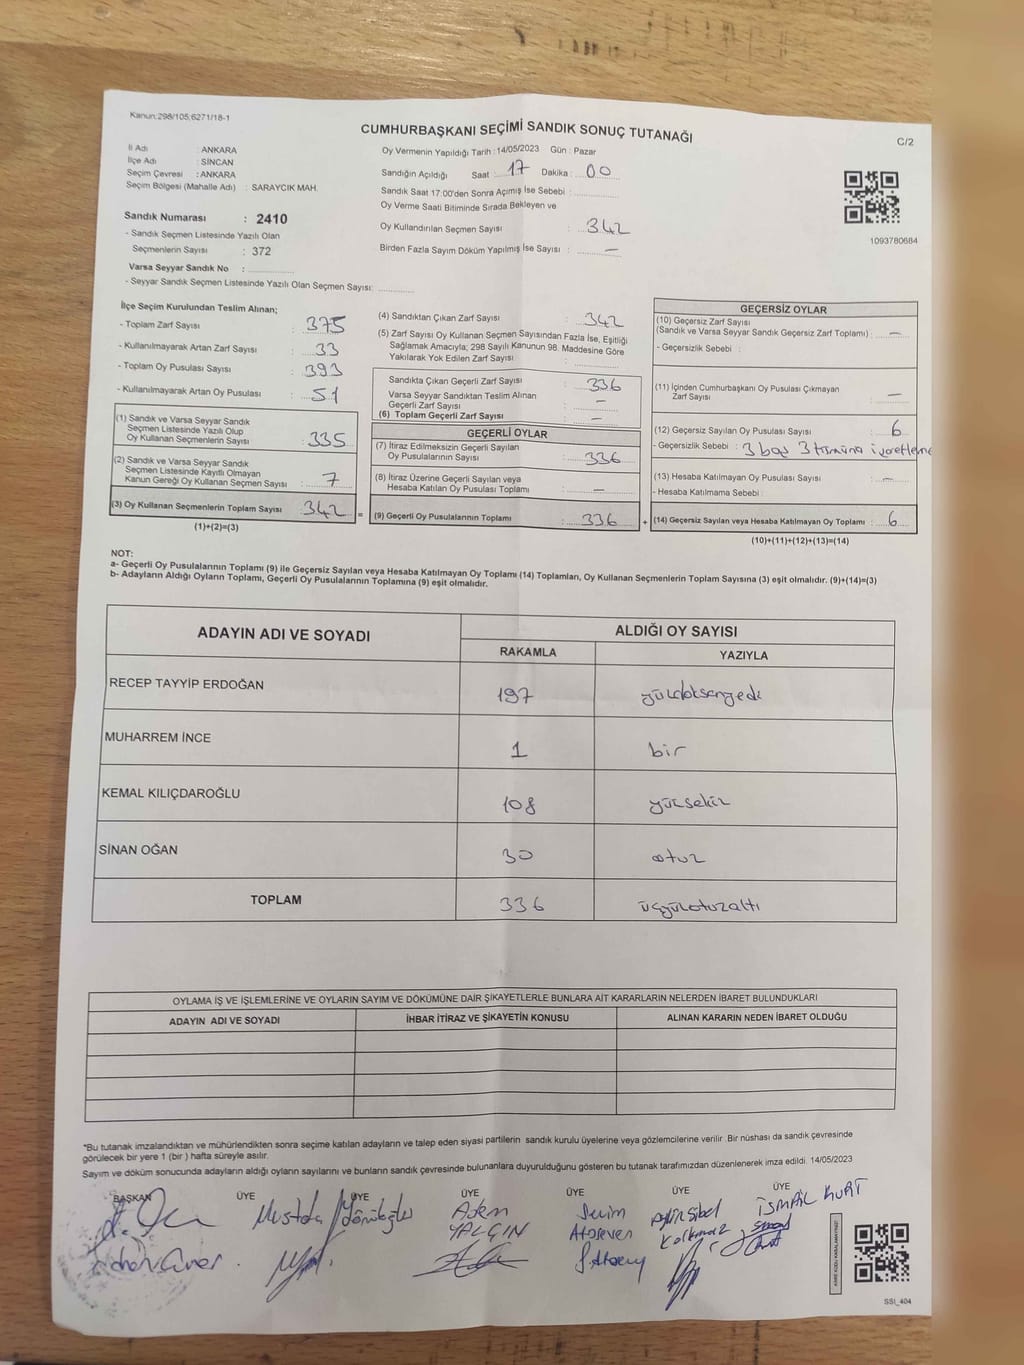 Kanun:298/105,6271/18-1
CUMHURBAŞKANI SEÇİMİ SANDIK SONUÇ TUTANAĞI
C/2
İl Adı : ANKARA
İlçe Adı : SİNCAN
Seçim Çevresi : ANKARA
Seçim Bölgesi (Mahalle Adı) : SARAYCIK MAH.
Sandık Numarası : 2410
- Sandık Seçmen Listesinde Yazılı Olan
Seçmenlerin Sayısı : 372
Varsa Seyyar Sandık No :
- Seyyar Sandık Seçmen Listesinde Yazılı Olan Seçmen Sayısı:
Oy Vermenin Yapıldığı Tarih : 14/05/2023 Gün : Pazar
Sandığın Açıldığı Saat : 17 Dakika : 00
Sandık Saat 17:00'den Sonra Açımış İse Sebebi :
Oy Verme Saati Bitiminde Sırada Bekleyen ve
Oy Kullandırılan Seçmen Sayısı : 342
Birden Fazla Sayım Döküm Yapılmış İse Sayısı : —
1093780684
İlçe Seçim Kurulundan Teslim Alınan;
- Toplam Zarf Sayısı : 375
- Kullanılmayarak Artan Zarf Sayısı : 33
- Toplam Oy Pusulası Sayısı : 393
- Kullanılmayarak Artan Oy Pusulası : 51
(1) Sandık ve Varsa Seyyar Sandık
Seçmen Listesinde Yazılı Olup
Oy Kullanan Seçmenlerin Sayısı : 335
(2) Sandık ve Varsa Seyyar Sandık
Seçmen Listesinde Kayıtlı Olmayan
Kanun Gereği Oy Kullanan Seçmen Sayısı : 7
(3) Oy Kullanan Seçmenlerin Toplam Sayısı : 342
(1)+(2)=(3)
(4) Sandıktan Çıkan Zarf Sayısı : 342
(5) Zarf Sayısı Oy Kullanan Seçmen Sayısından Fazla İse, Eşitliği
Sağlamak Amacıyla; 298 Sayılı Kanunun 98. Maddesine Göre
Yakılarak Yok Edilen Zarf Sayısı :
Sandıkta Çıkan Geçerli Zarf Sayısı : 336
Varsa Seyyar Sandıktan Teslim Alınan
Geçerli Zarf Sayısı : —
(6) Toplam Geçerli Zarf Sayısı : —
GEÇERLİ OYLAR
(7) İtiraz Edilmeksizin Geçerli Sayılan
Oy Pusulalarının Sayısı : 336
(8) İtiraz Üzerine Geçerli Sayılan veya
Hesaba Katılan Oy Pusulası Toplamı : —
= (9) Geçerli Oy Pusulalarının Toplamı : 336
GEÇERSİZ OYLAR
(10) Geçersiz Zarf Sayısı
(Sandık ve Varsa Seyyar Sandık Geçersiz Zarf Toplamı) : —
- Geçersizlik Sebebi :
(11) İçinden Cumhurbaşkanı Oy Pusulası Çıkmayan
Zarf Sayısı : —
(12) Geçersiz Sayılan Oy Pusulası Sayısı : 6
- Geçersizlik Sebebi : 3 boş 3
(13) Hesaba Katılmayan Oy Pusulası Sayısı : —
- Hesaba Katılmama Sebebi :
+ (14) Geçersiz Sayılan veya Hesaba Katılmayan Oy Toplamı : 6
(10)+(11)+(12)+(13)=(14)
NOT:
a- Geçerli Oy Pusulalarının Toplamı (9) ile Geçersiz Sayılan veya Hesaba Katılmayan Oy Toplamı (14) Toplamları, Oy Kullanan Seçmenlerin Toplam Sayısına (3) eşit olmalıdır. (9)+(14)=(3)
b- Adayların Aldığı Oyların Toplamı, Geçerli Oy Pusulalarının Toplamına (9) eşit olmalıdır.
ADAYIN ADI VE SOYADI
ALDIĞI OY SAYISI
RAKAMLA YAZIYLA
RECEP TAYYİP ERDOĞAN 197 yüzdoksanyedi
MUHARREM İNCE 1 bir
KEMAL KILIÇDAROĞLU 108 yüzsekiz
SİNAN OĞAN 30 otuz
TOPLAM 336 üçyüzotuzaltı
OYLAMA İŞ VE İŞLEMLERİNE VE OYLARIN SAYIM VE DÖKÜMÜNE DAİR ŞİKAYETLERLE BUNLARA AİT KARARLARIN NELERDEN İBARET BULUNDUKLARI
ADAYIN ADI VE SOYADI İHBAR İTİRAZ VE ŞİKAYETİN KONUSU ALINAN KARARIN NEDEN İBARET OLDUĞU
*Bu tutanak imzalandıktan ve mühürlendikten sonra seçime katılan adayların ve talep eden siyasi partilerin sandık kurulu üyelerine veya gözlemcilerine verilir. Bir nüshası da sandık çevresinde
görülecek bir yere 1 (bir ) hafta süreyle asılır.
Sayım ve döküm sonucunda adayların aldığı oyların sayılarını ve bunların sandık çevresinde bulunanlara duyurulduğunu gösteren bu tutanak tarafımızdan düzenlenerek imza edildi. 14/05/2023
BAŞKAN ÜYE ÜYE ÜYE ÜYE ÜYE ÜYE
Mustafa Adem İSMAİL KURT
YALÇIN
Korkmaz
SSI_404